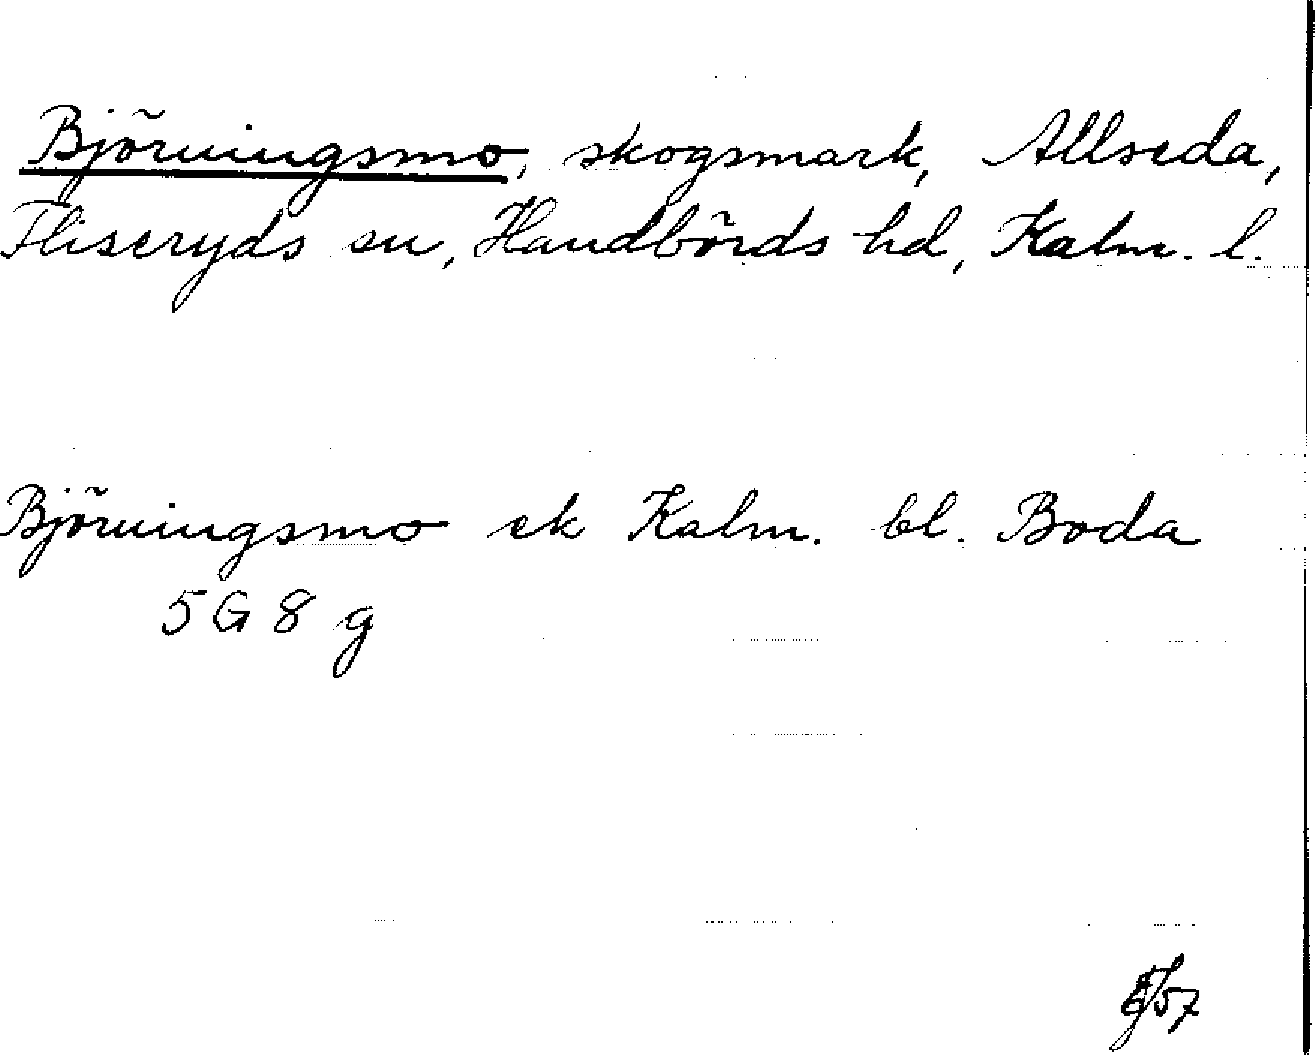 Björningsmo, skogsmark, Allseda,
Fliseryds sn, Handbörds hd, Kalm. l.
Björningsmo ek Kalm. bl. Boda
5 G 8 g